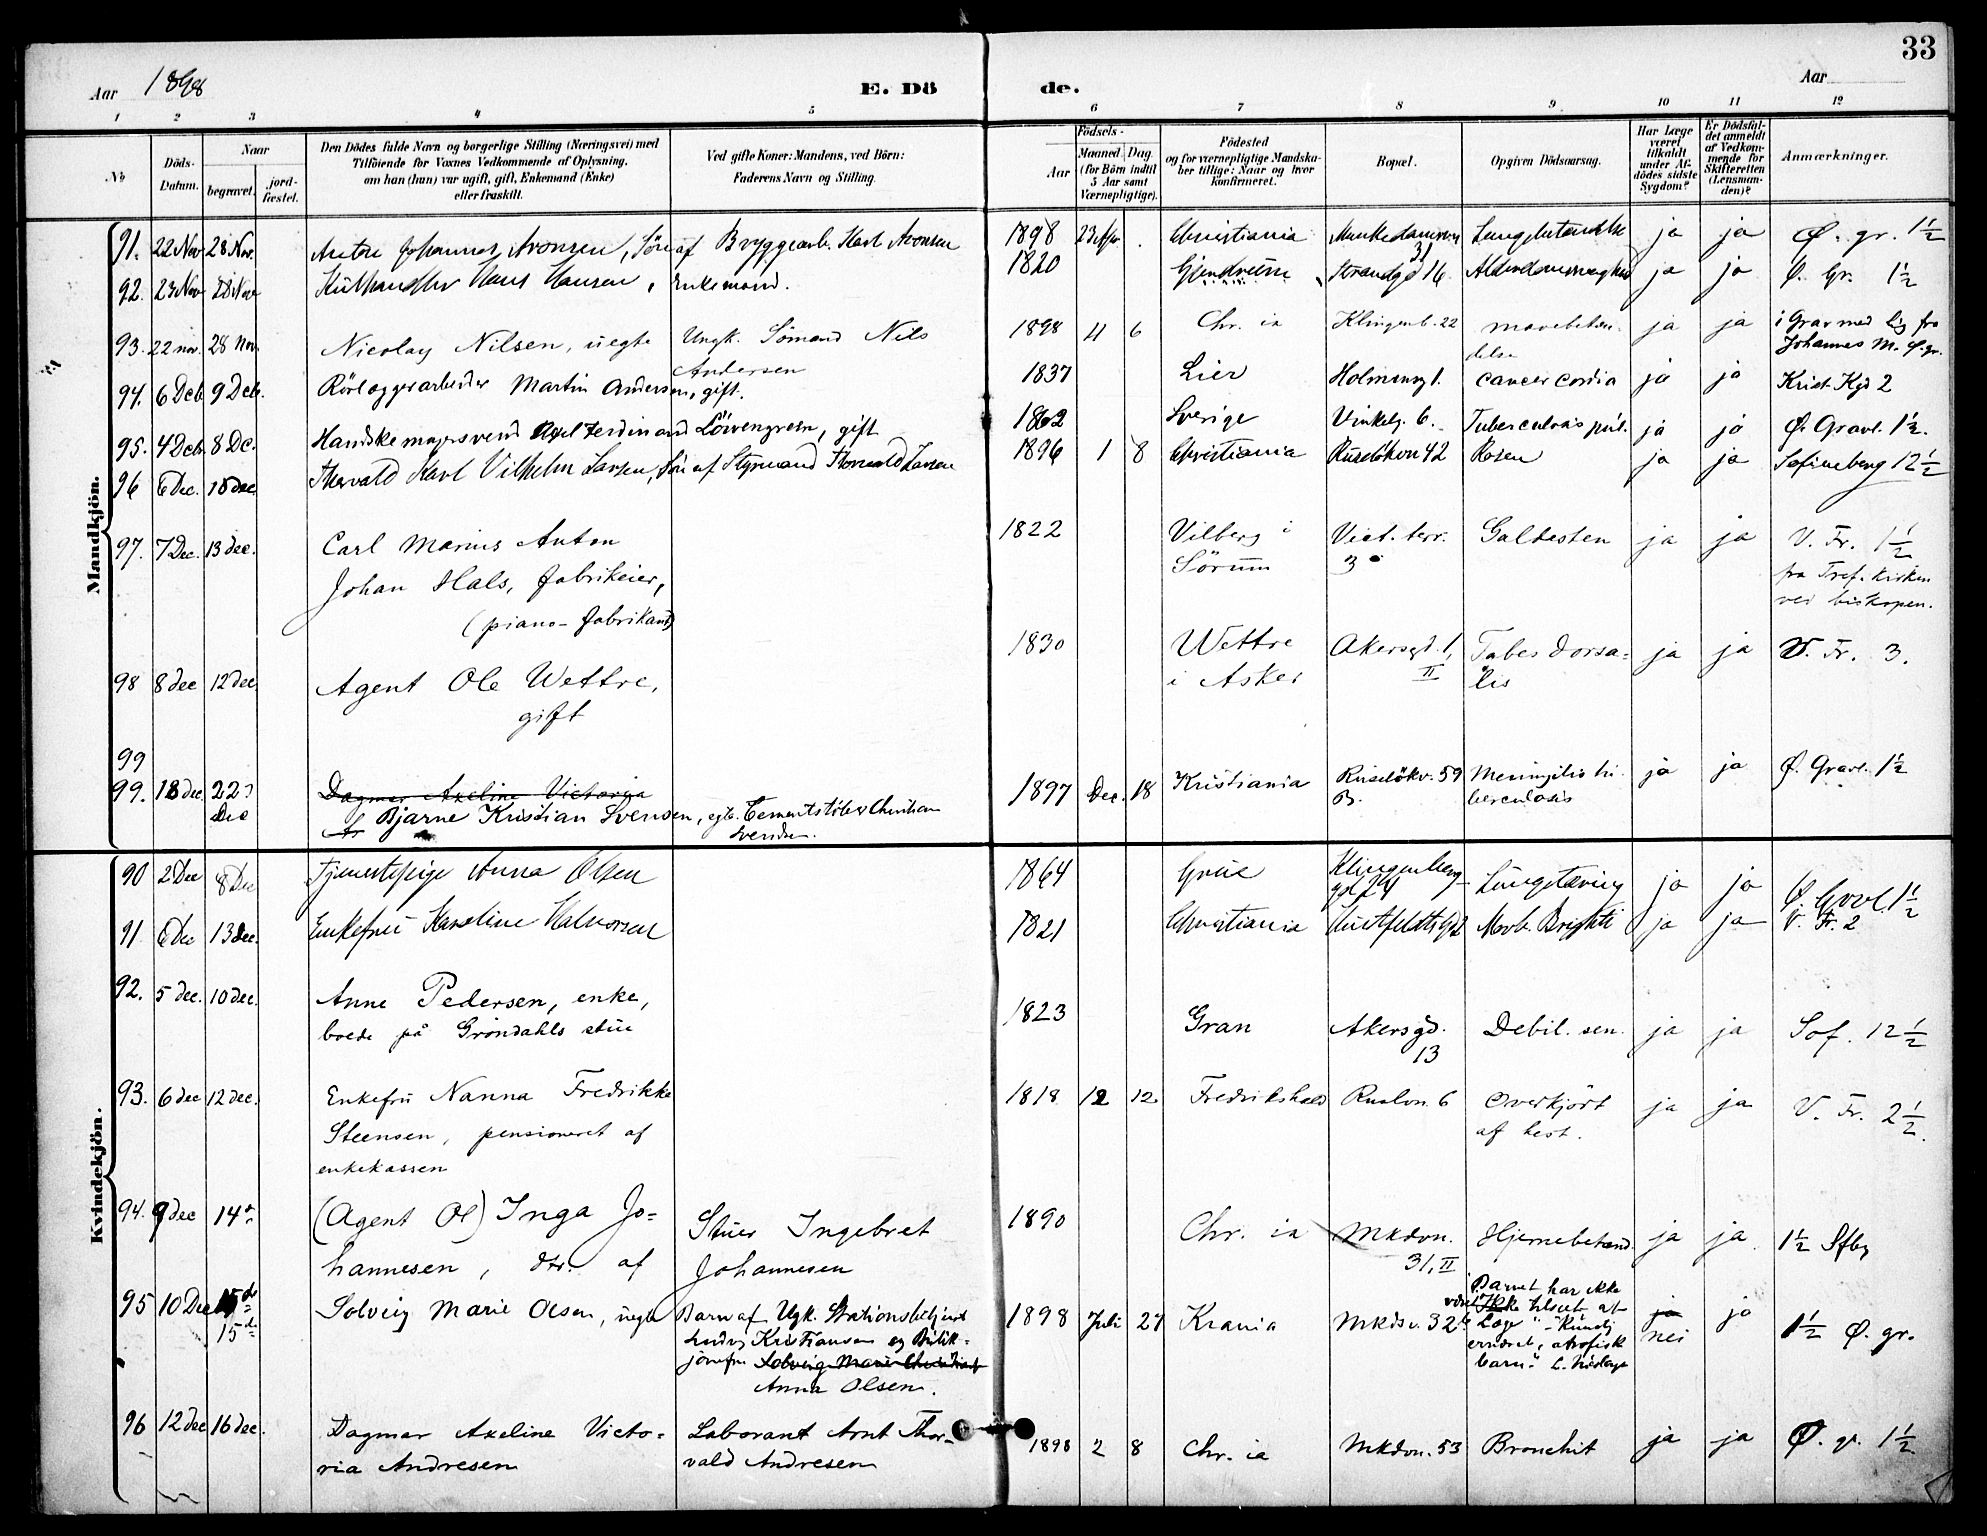 33
Aar 1898
E. Dö
de.
Aar
1 2 3 4 5 6 7 8 9 10 11 12
No
Döds-Datum.
Naar
begravet.
jord-fæstet.
Den Dödes fulde Navn og borgerlige Stilling (Næringsvei) med
Tilföiende for Voxnes Vedkommende af Oplysning,
om han (hun) var ugift, gift, Enkemand (Enke)
eller fraskilt.
Ved gifte Koner: Mandens, ved Börn:
Faderens Navn og Stilling.
Födsels-
Aar
Maaned. Dag.
(for Börn indtil
5 Aar samt
Værnepligtige).
Födested
og for værnepligtige Mandska-
ber tillige: Naar og hvor
konfirmeret.
Bopæl.
Opgiven Dödsaarsag.
Har Læge
været
tilkaldt
under Af-
dödes sidste
Sygdom?
Er Dödsfal-
det anmeldt
af Vedkom-
mende for
Skifteretten
(Lensman-
den)?
Anmærkninger.
Mandkjön.
91. 22 Nov 28 Nov. Anton Johannes Aronsen, Sön af Bryggearb. Karl Aronsen 1898 Christiania Munkedamsven 31 ja ja Ø. gr. 1½
92. 23 Nov 28 Nov Hans Hansen, Enkemand. 1820 Strandgd 16 ja ja Ø. Gr. 1½
93. 22 nov. 28 Nov. Nicolay Nilsen, uegte Ungk. Sömand Nils Andersen 1898 11 6 Chr. ia Klingenb. 22 mavebetændelse ja ja i Grav med Lig fra Johannes M. Ø. gr.
94. 6 Deb 9 Deb. Rörlæggerarbeider Martin Andersen, gift. 1837 Lier Holmensg 1. cancer cordia ja ja Krist. Kgd 2
95. 4 Deb 8 Dc. Handskemagersvend Axel Ferdinand Löwengreen, gift 1862 Sverige Vinkelg. 6. Tuberculosis pul. ja ja Ø. Gravl. 1½.
96 6 Dec. 10 dec. Thorvald Karl Vilhelm Larsen, Sön af Styrmand Thorvald Larsen 1896 1 8 Christiania Ruselökvn 42 Rosen ja ja Sofienberg 12½
97. 7 Dec. 13 dec. Carl Marius Anton
Johan Hals, fabrikeier,
(piano-fabrikant) 1822 Vilberg i Sörum Vict. terr. 3 Galdesten ja ja V. Fr. 1½
fra Tref. kirken
ved biskopen.
98 8 dec 12 dec. Agent Ole Wettre,
gift 1830 Wettre i Asker Akersgt. 1, II Tabes dorsalis ja ja V. Fr. 3.
99
99. 18 dec 22 Dec Dagmar Axeline Victoria
Bjarne Kristian Svensen, egte. Cementstöber Christian Svendsen. 1897 Dec. 18 Kristiania Ruselökv. 59 B. Meningitis tuberculosis ja ja Ø. Gravl. 1½
Kvindekjön.
90 2 Dec 8 Dec Tjenestepige Anna Olsen 1864 Grue Klingenberggd 24 Lungetæring ja ja Ø. Gravl. 1½
91 6 Dec 13 dec. Enkefru Karoline Halvorsen 1821 Christiania Huitfeldtsgd Morb. Brightii ja ja V. Fr. 2
92. 5 dec. 10 dec. Anne Pedersen, enke,
boede på Gröndahls stue 1823 Gran Akersgd. 13 Debil. sen. ja ja Sof. 12½
93. 6 dec 12 dec. Enkefru Nanna Fredrikke
Steensen, pensioneret af
enkekassen 1818 12 12 Fredrikshald Ruslvn. 6 Overkjört af hest. ja ja V. Fr. 2½.
94. 9 dec 14 (Agent Ol) Inga Jo-
hannesen, dtr. af Stuer Ingebret Johannesen 1890 Chr. ia Mkdvn. 31, II Hjernebetænd. ja ja. 1½ Sfbg
95 10 Dec 15 de 15 d. Solveig Marie Olsen, uegte Barn af Ugk. Stationsbetjent
Kristiansen og Butik-
jomfru Solveig Marie
Anna Olsen. 1898 Juli 27 Krania Mkdv. 32 Barnet har ikke
været Ikke tilseet at
Læge - Kundg
atrofisk
barn. ja nei ja 1½ Ø. gr.
96 12 dec 16 dec. Dagmar Axeline Victo-
ria Andresen Laborant Arnt Thor-
vald Andresen 1898 2 8 Chr. ia Mkdvn. 53 Bronchit ja ja Ø. gr. 1½